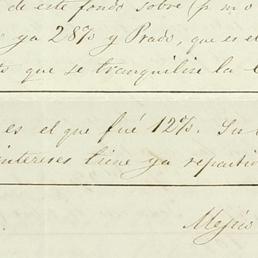 de este fondo sobre (p m o
ya 28% y Prado, que es el
que se tranquilise la
es el que fué 12%. Su
intereses tiene ya reparti
Mejic